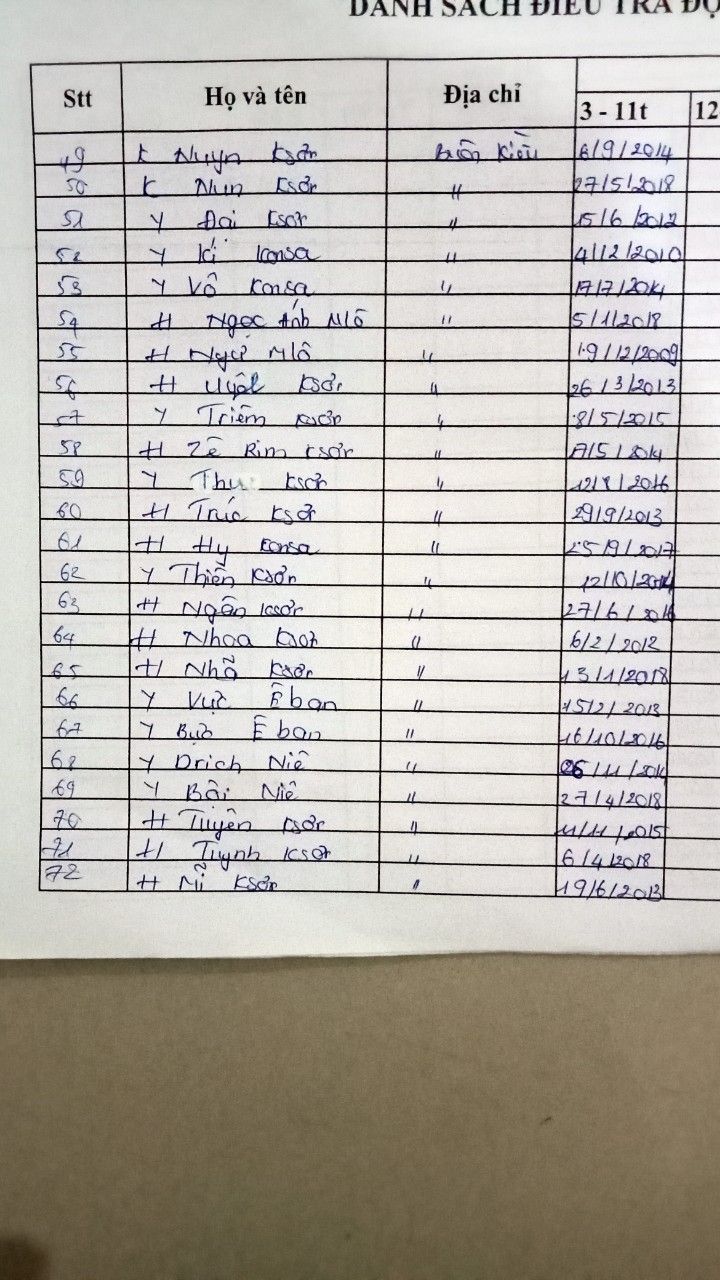 DANH SÁCH ĐIỀU TRA
Stt Họ và tên Địa chỉ 3 - 11t 12
49 K Nuyn Ksơr Buôn Kiều 6/9/2014
50 K Nun Ksơr " 27/5/2018
51 Y Đại Ksơr " 15/6/2012
52 Y Kỉ Konsa " 4/12/2010
53 Y Vô Konsa " 17/7/2014
54 H Ngọc Ánh Mlô " 5/1/2018
55 H Ngự Mlô " 19/12/2009
56 H Uyôl Ksơr " 26/3/2013
57 Y Triêm Ksơr " 8/5/2015
58 H Zê Rim Ksơr " 17/5/2014
59 Y Ksơr " 12/8/2016
60 H Trúc Ksơr " 29/9/2013
61 H Hy Konsa " 25/9/2017
62 Y Thiên Ksơr " 12/10/2014
63 H Ngân Ksơr " 27/6/2016
64 H Nhoa Ksơr " 6/2/2012
65 H Nhã Ksơr " 13/1/2018
66 Y Vực Êban " 15/2/2013
67 Y Bực Êban " 16/10/2016
68 Y Drich Niê "
69 Y Bãi Niê " 27/4/2018
70 H Tuyên Ksơr " 11/11/2015
71 H Tuynh Ksơr " 6/4/2018
72 H Mĩ Ksơr " 19/6/2013